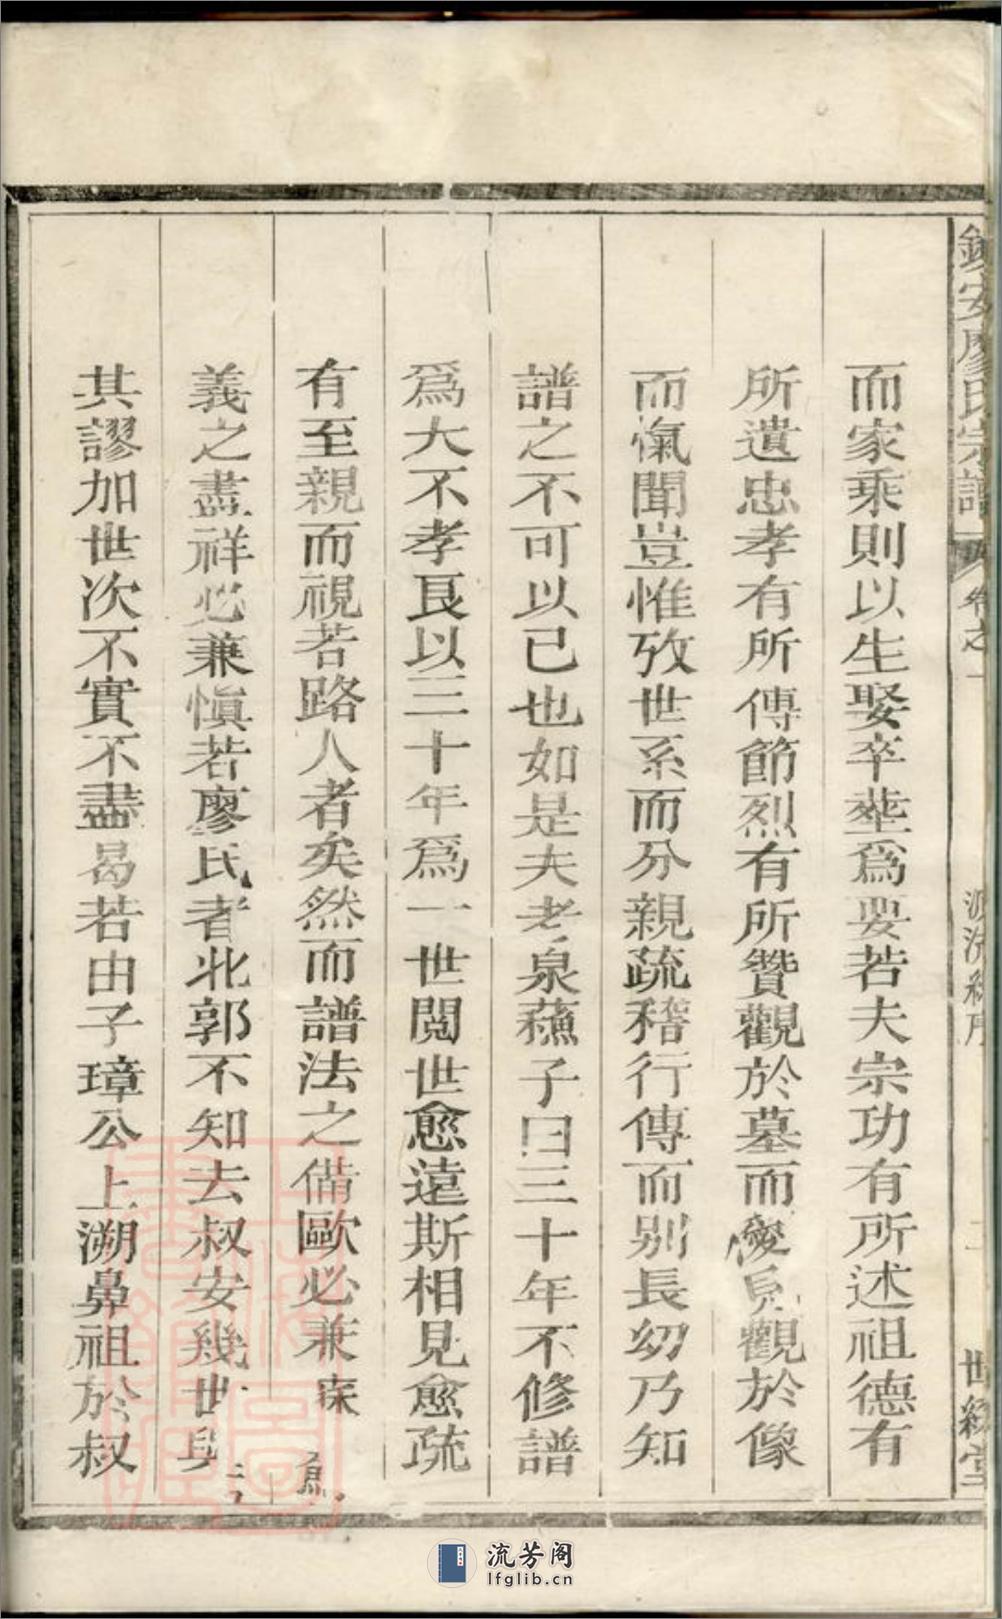 安廖氏宗譜 卷之一 世綵堂
而家乘則以生娶卒塟爲要若夫宗功有所述祖德有
所遺忠孝有所傳節烈有所贊觀於墓而僾見觀於像
而愾聞豈惟攷世系而分親疏稽行傳而别長幼乃知
譜之不可以已也如是夫老泉蘓子曰三十年不修譜
爲大不孝良以三十年爲一世閲世愈遠斯相見愈疏
有至親而視若路人者矣然而譜法之備歐必兼
義之盡祥必兼慎若廖氏者北郭不知去叔安幾世
其謬加世次不實不盡曷若由子璋公上溯鼻祖於叔
流芳阁
lfglib.cn